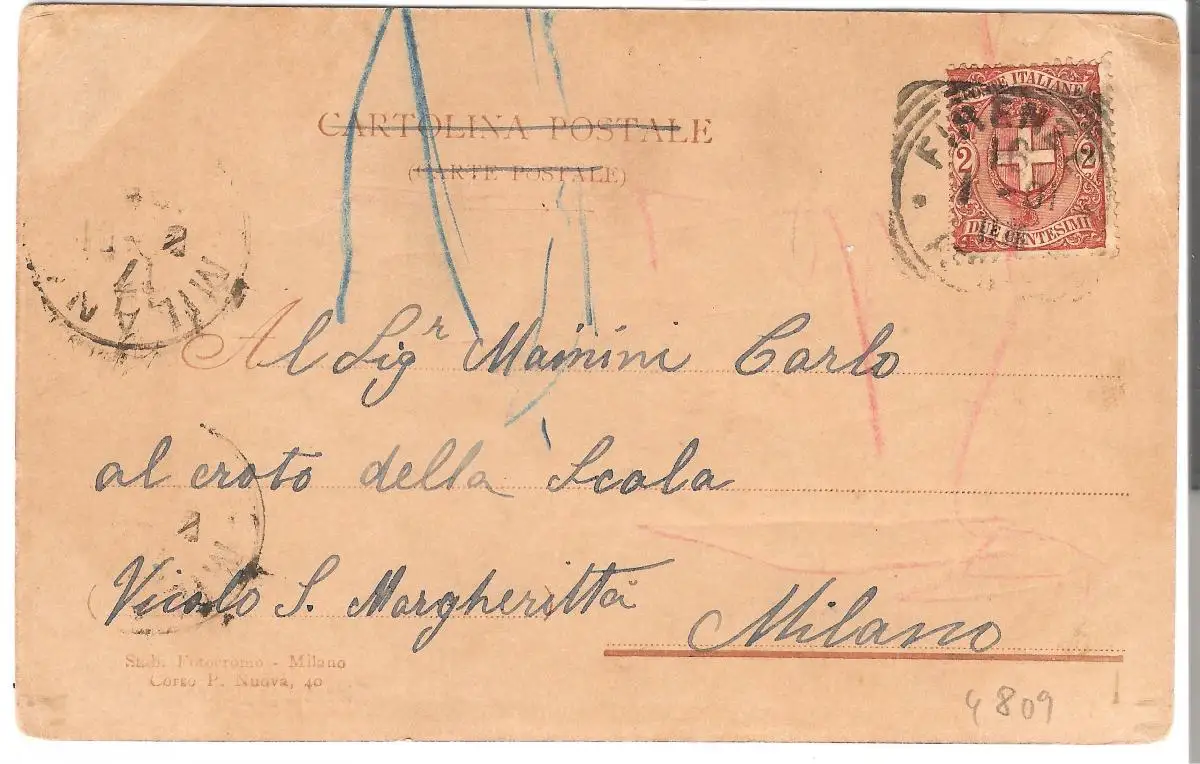 CARTOLINA POSTALE
(CARTE POSTALE)
POSTE ITALIANE
2 2
DUE CENTESIMI
FIRENZE
MILANO
Al Sigr Mainini Carlo
al croto della Scala
Vicolo S. Margheritta
Milano
Stab. Fotocromo - Milano
Corso P. Nuova, 40
4809